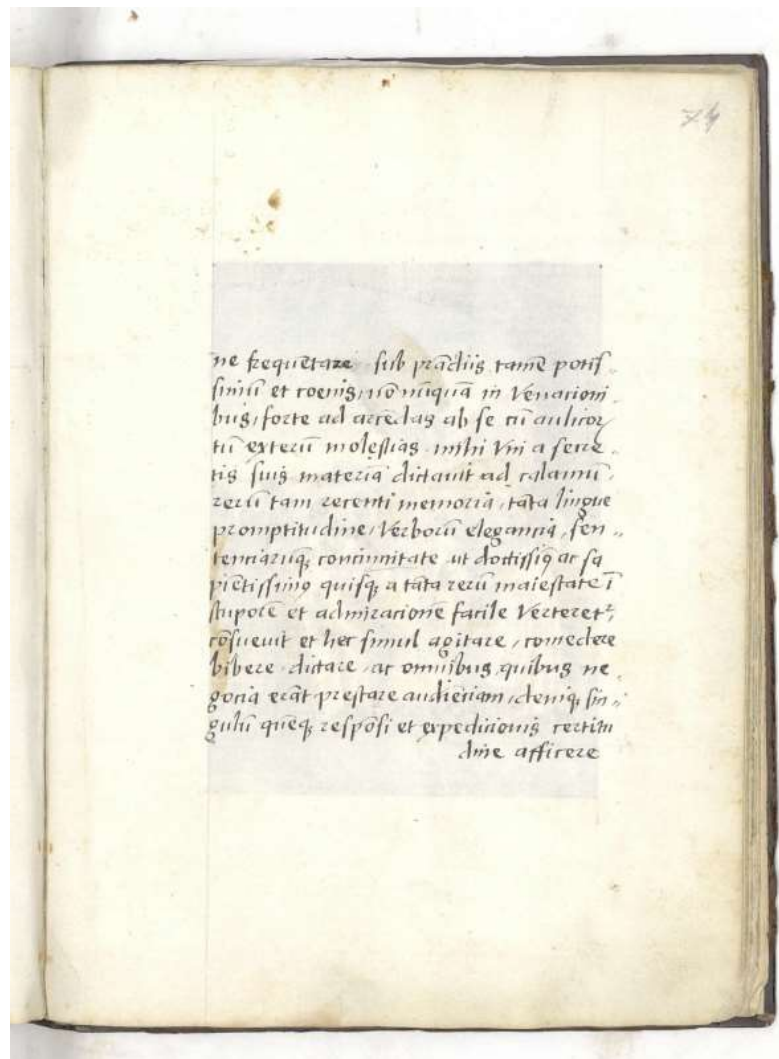 74
ne frequētare sub prādiis tamē potis..
simū et coenis, nō nūquā in Venacioni
bus, forte ad arcēdas ab se cū aulicor
tū exterū molestias mihi Vni a secre..
tis suis materiā dictauit ad calamū,
rerū tam recenti memoria, tāta lingue
promptitudine, Verborū elegancia, sen..
tenciarūq; concinnitate ut doctissiꝯ ac sa
piētissimꝯ quisq; a tāta rerū maiestate ī
stuporē et admiracionē facile Verteret2,
cōsueuit et hec simul agitare, comedere
bibere dictare, ac omnibus quibus ne.
gocia erāt prestare audiēciam, deniq; sin..
gulū quēq; respōsi et expedicionis certitu
dine afficere